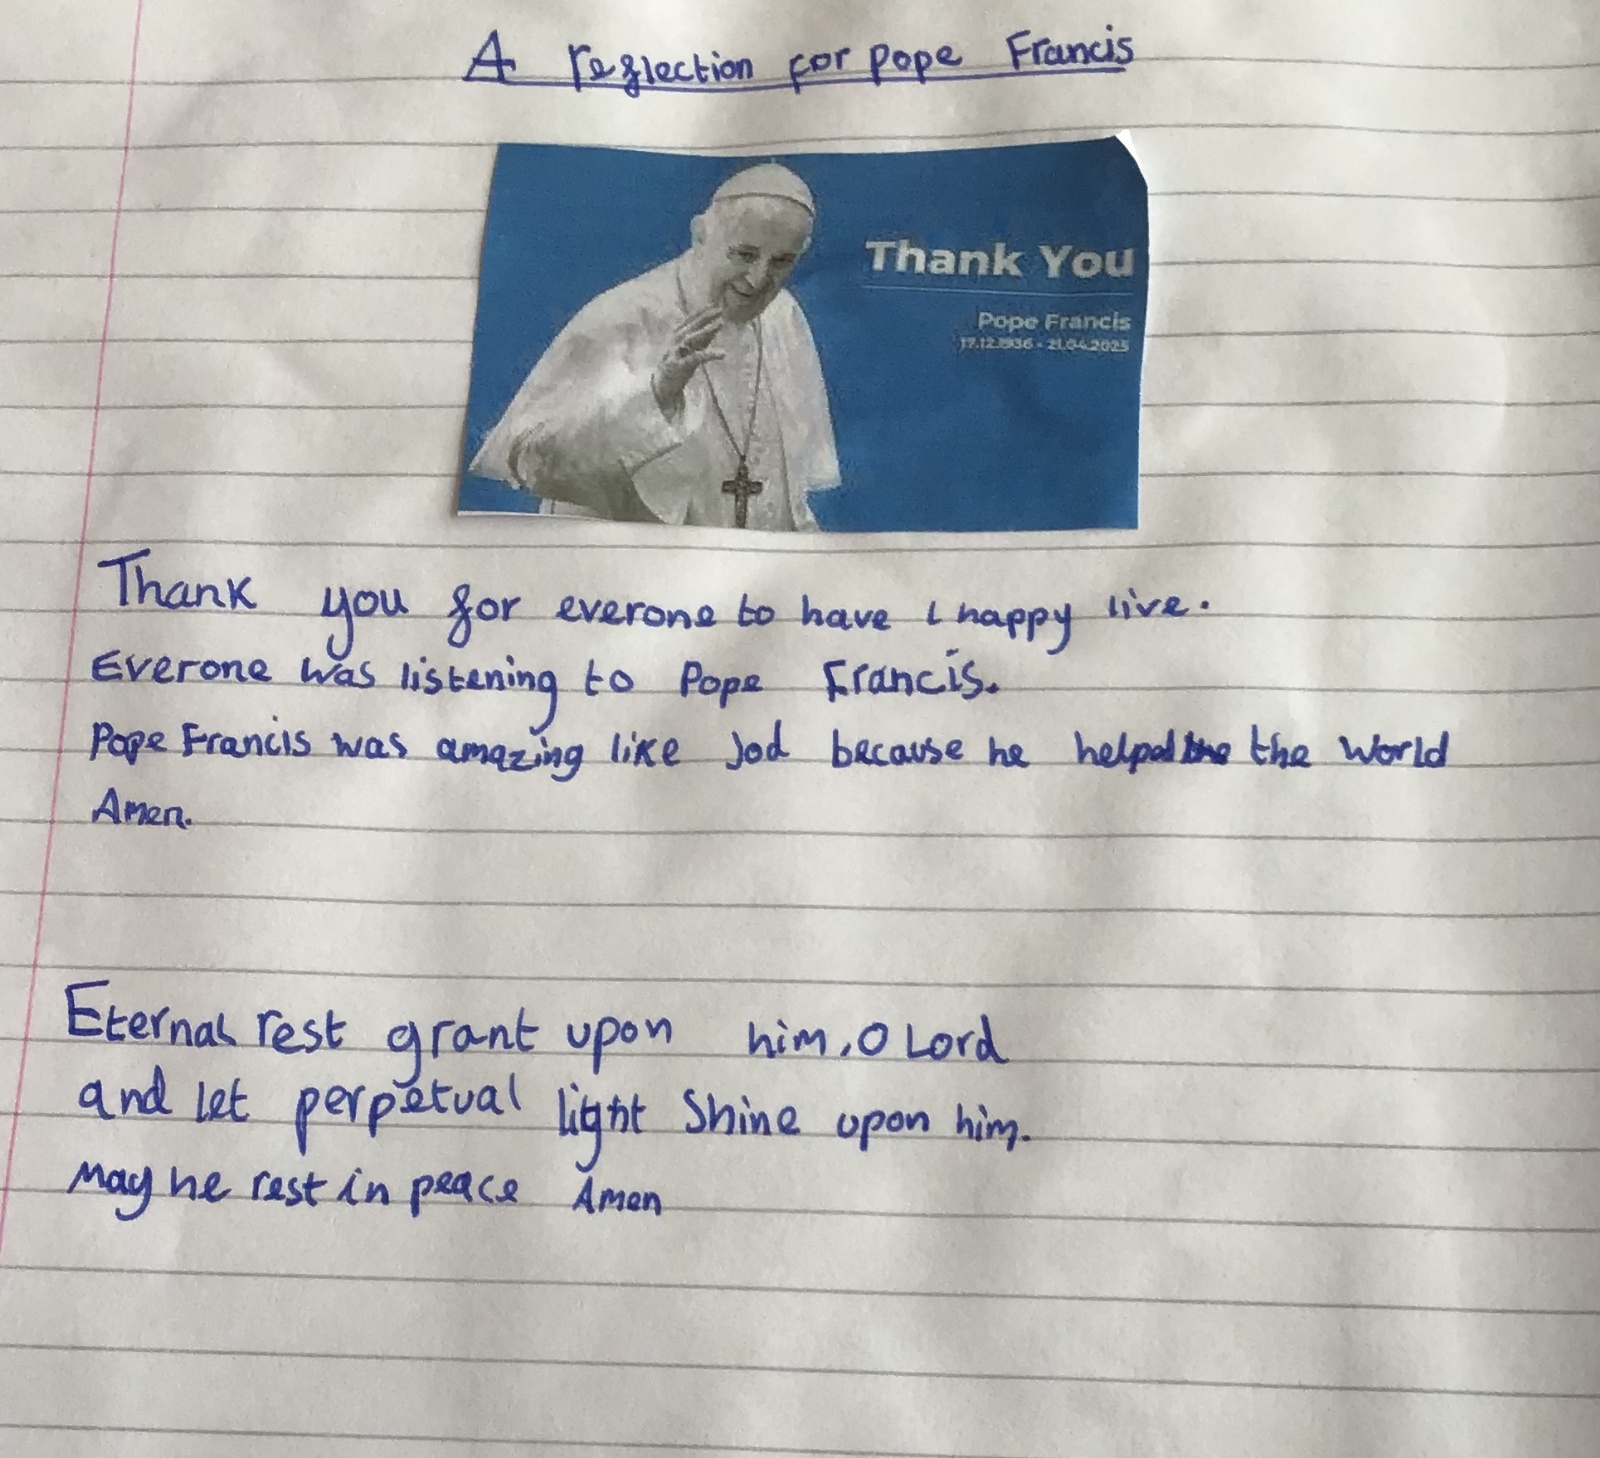 A reflection for pope Francis
Thank You
Pope Francis
17.12.1936 - 21.04.2025
Thank you for everone to have a happy live.
Everone was listening to Pope Francis.
Pope Francis was amazing like God because he helped the the World
Amen.
Eternal rest grant upon him, O Lord
and let perpetual light Shine upon him.
May he rest in peace Amen